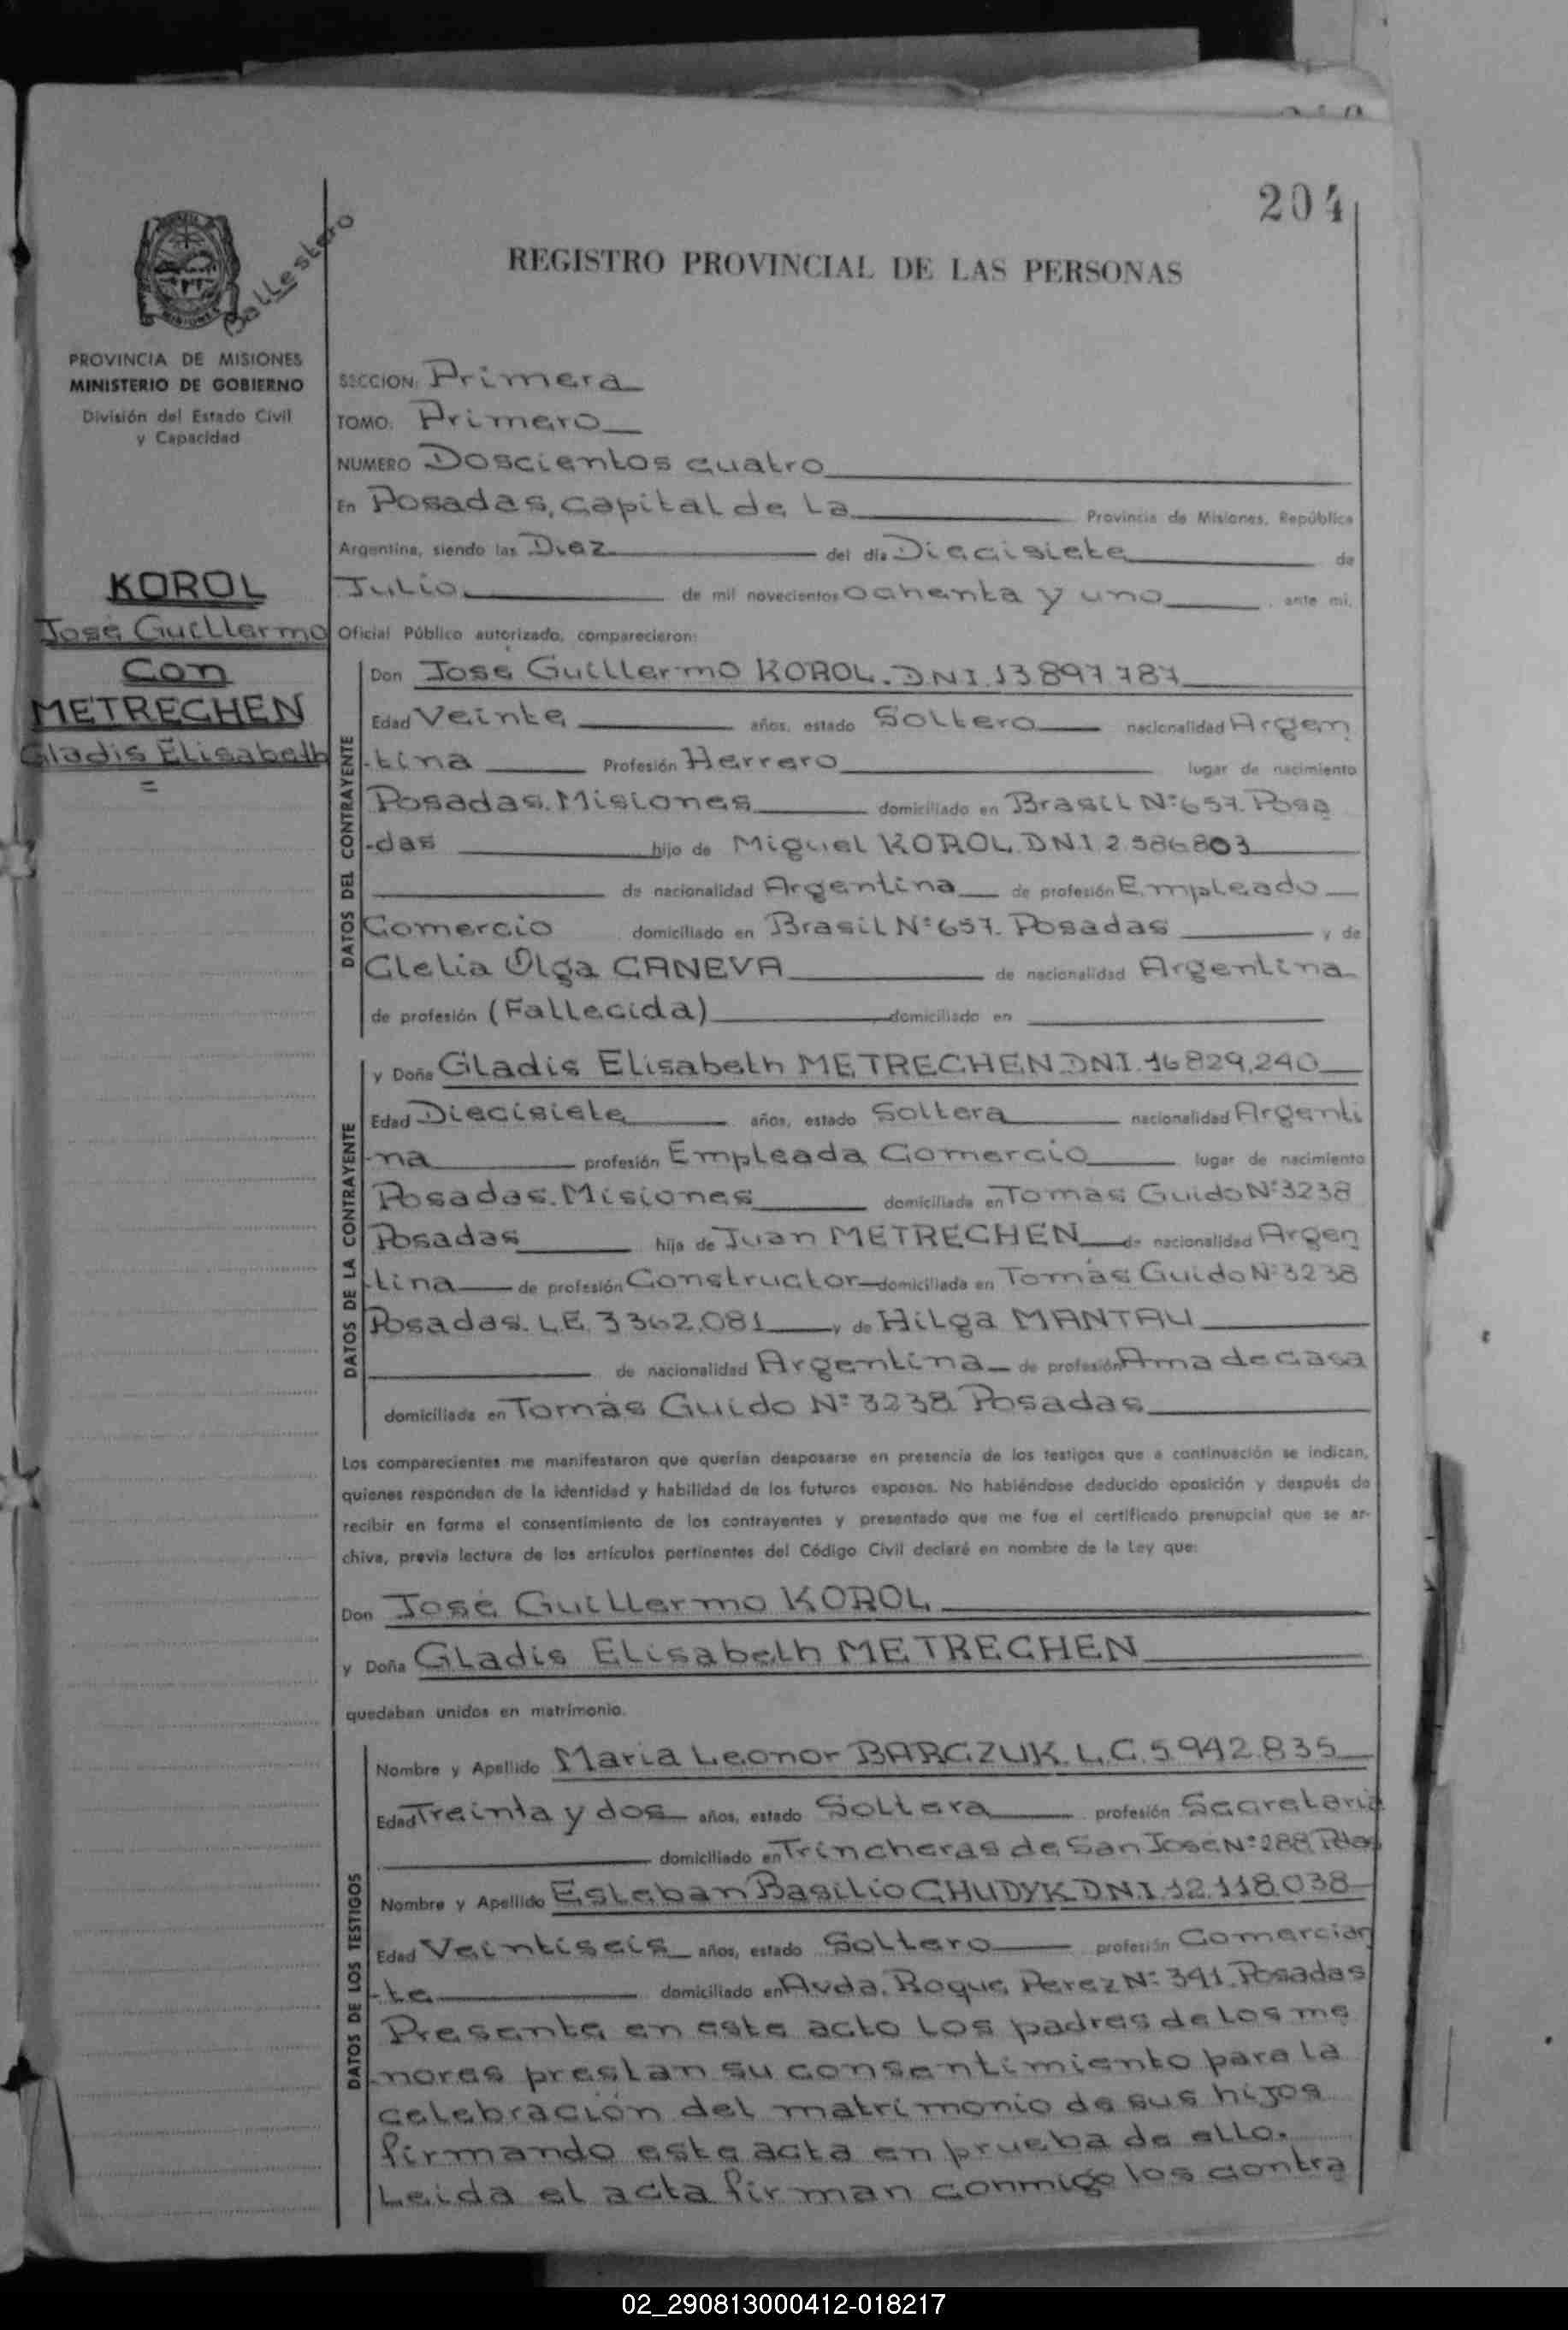 204
Ballestero
MISIONES
REGISTRO PROVINCIAL DE LAS PERSONAS
PROVINCIA DE MISIONES
MINISTERIO DE GOBIERNO
División del Estado Civil
y Capacidad
KOROL
José Guillermo
Con
METRECHEN
Gladis Elisabeth
=
SECCION: Primera
TOMO: Primero
NUMERO Doscientos cuatro
En Posadas, Capital de La Provincia de Misiones, República
Argentina, siendo las Diez del día Diecisiete de
Julio de mil novecientos ochenta y uno ante mí,
Oficial Público autorizado, comparecieron:
DATOS DEL CONTRAYENTE
Don José Guillermo KOROL. DNI.13897787
Edad Veinte años, estado Soltero nacionalidad Argen
-tina Profesión Herrero lugar de nacimiento
Posadas. Misiones domiciliado en Brasil Nº657. Posa
-das hijo de Miguel KOROL. DNI 2.586803
de nacionalidad Argentina de profesión Empleado
Comercio domiciliado en Brasil Nº657. Posadas y de
Clelia Olga CANEVA de nacionalidad Argentina
de profesión (Fallecida) domiciliada en
DATOS DE LA CONTRAYENTE
y Doña Gladis Elisabeth METRECHEN DNI.16829.240
Edad Diecisiete años, estado Soltera nacionalidad Argenti
-na profesión Empleada Comercio lugar de nacimiento
Posadas. Misiones domiciliada en Tomás Guido Nº3238
Posadas hija de Juan METRECHEN de nacionalidad Argen
-tina de profesión Constructor domiciliado en Tomás Guido Nº3238
Posadas. L.E. 3362.081 y de Hilga MANTAU
de nacionalidad Argentina de profesión Ama de casa
domiciliada en Tomás Guido Nº 3238 Posadas
Los comparecientes me manifestaron que querían desposarse en presencia de los testigos que a continuación se indican,
quienes responden de la identidad y habilidad de los futuros esposos. No habiéndose deducido oposición y después de
recibir en forma el consentimiento de los contrayentes y presentado que me fue el certificado prenupcial que se ar-
chiva, previa lectura de los artículos pertinentes del Código Civil declaré en nombre de la Ley que:
Don José Guillermo KOROL
y Doña Gladis Elisabeth METRECHEN
quedaban unidos en matrimonio.
DATOS DE LOS TESTIGOS
Nombre y Apellido María Leonor BARCZUK. L.C. 5.942.835
Edad Treinta y dos años, estado Soltera profesión Secretaria
domiciliado en Trincheras de San José Nº288 Pdas
Nombre y Apellido Esteban Basilio CHUDYK DNI 12.118.038
Edad Veintiseis años, estado Soltero profesión Comercian
-te domiciliado en Avda. Roque Perez Nº 341. Posadas
Presente en este acto los padres de los me
-nores prestan su consentimiento para la
celebración del matrimonio de sus hijos
firmando este acta en prueba de ello.
Leida el acta firman conmigo los contra
02_290813000412-018217